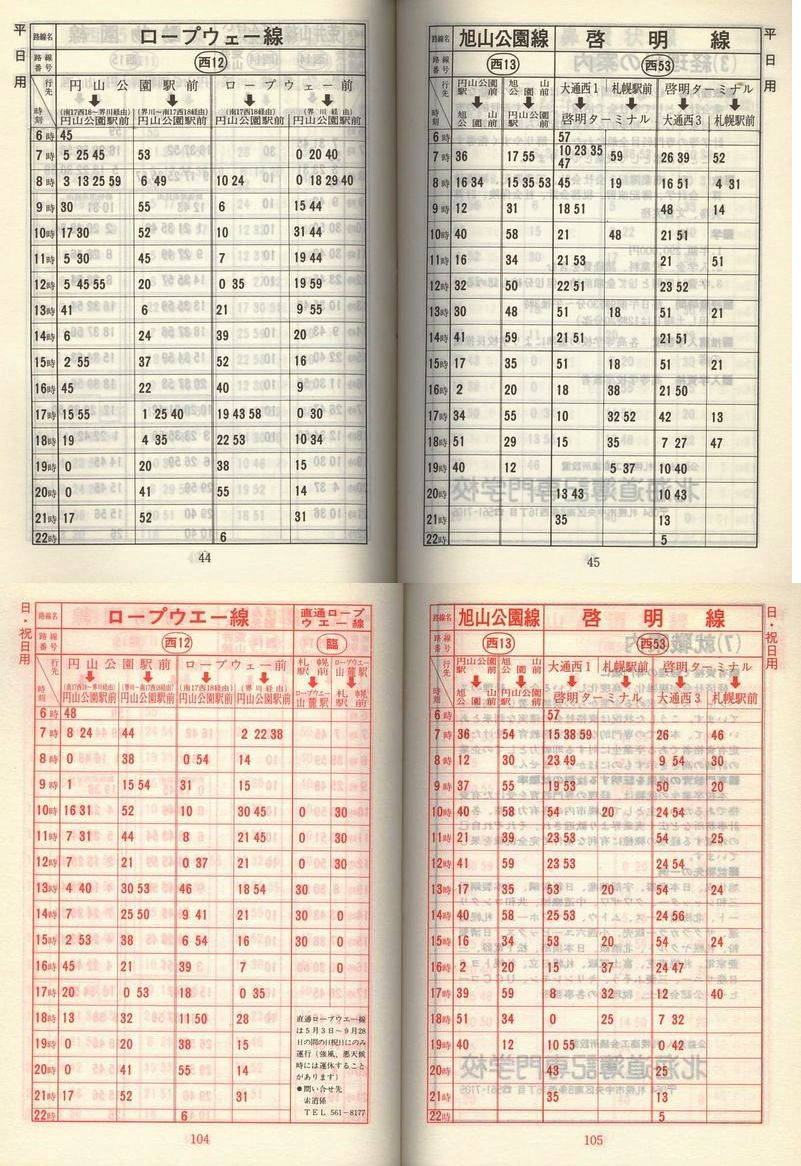 平日用
路線名 ロープウェー線
路線番号 西12
行先 円山公園駅前 ロープウェー前
時刻 (南17西18〜界川経由)円山公園駅前 (界川〜南17西18経由)円山公園駅前 (南17西18経由)円山公園駅前 (界川経由)円山公園駅前
6時 45
7時 5 25 45 53 0 20 40
8時 3 13 25 59 6 49 10 24 0 18 29 40
9時 30 55 6 15 44
10時 17 30 52 10 31 44
11時 5 30 45 7 19 44
12時 5 45 55 20 0 35 19 59
13時 41 6 21 9 55
14時 6 24 39 20
15時 2 55 37 52 16
16時 45 22 40 9
17時 15 55 1 25 40 19 43 58 0 30
18時 19 4 35 22 53 10 34
19時 0 20 38 15
20時 0 41 55 14
21時 17 52 31
22時 6
44
平日用
路線名 旭山公園線 啓明線
路線番号 西13 西53
行先 円山公園駅前 旭山公園前 大通西1 札幌駅前 啓明ターミナル
時刻 旭山公園前 円山公園駅前 啓明ターミナル 大通西3 札幌駅前
6時 57
7時 36 17 55 10 23 35 47 59 26 39 52
8時 16 34 15 35 53 45 19 16 51 4 31
9時 12 31 18 51 48 14
10時 40 58 21 48 21 51
11時 16 34 21 53 21 51
12時 32 50 22 51 23 52
13時 30 48 51 18 51 21
14時 41 59 21 51 21 51
15時 17 35 51 18 51 21
16時 2 20 18 38 21 50
17時 34 55 10 32 52 42 13
18時 51 29 15 35 7 27 47
19時 40 12 5 37 10 40
20時 13 43 10 43
21時 35 13
22時 5
45
日・祝日用
路線名 ロープウエー線 直通ロープウエー線
路線番号 西12 臨
行先 円山公園駅前 ロープウェー前 札幌駅前 ロープウエー山麓駅
時刻 (南17西18〜界川経由)円山公園駅前 (界川〜南17西18経由)円山公園駅前 (南17西18経由)円山公園駅前 (界川経由)円山公園駅前 ロープウエー山麓駅 札幌駅前
6時 48
7時 8 24 44 2 22 38
8時 0 38 0 54 14
9時 1 15 54 31 15
10時 16 31 52 10 30 45 0 30
11時 7 31 44 8 21 45 0 30
12時 7 21 0 37 21 0 30
13時 4 40 30 53 46 18 54 30
14時 7 25 50 9 41 21 30 0
15時 2 53 38 6 54 16 30 0
16時 45 21 39 7 0
17時 20 0 53 18 0 35
18時 13 32 11 50 28
19時 0 20 38 15
20時 0 41 55 14
21時 17 52 31
22時 6
直通ロープウエー線
は5月3日〜9月28
日の間の日祝日にのみ
運行(強風、悪天候
時には運休すること
があります)
●問い合せ先
索道係
TEL 561−8177
104
日・祝日用
路線名 旭山公園線 啓明線
路線番号 西13 西53
行先 円山公園駅前 旭山公園前 大通西1 札幌駅前 啓明ターミナル
時刻 旭山公園前 円山公園駅前 啓明ターミナル 大通西3 札幌駅前
6時 57
7時 36 54 15 38 59 26 46
8時 12 30 23 49 9 54 30
9時 37 55 19 53 50 20
10時 40 58 54 20 24 54
11時 21 39 23 53 54 25
12時 41 59 23 53 24 54
13時 17 35 53 20 54 24
14時 40 58 25 53 24 56
15時 16 34 53 20 54 24
16時 2 20 15 37 24 47
17時 39 59 8 32 12 40
18時 51 34 0 25 7 32
19時 40 12 10 55 0 42
20時 43 25
21時 35 13
22時 5
105